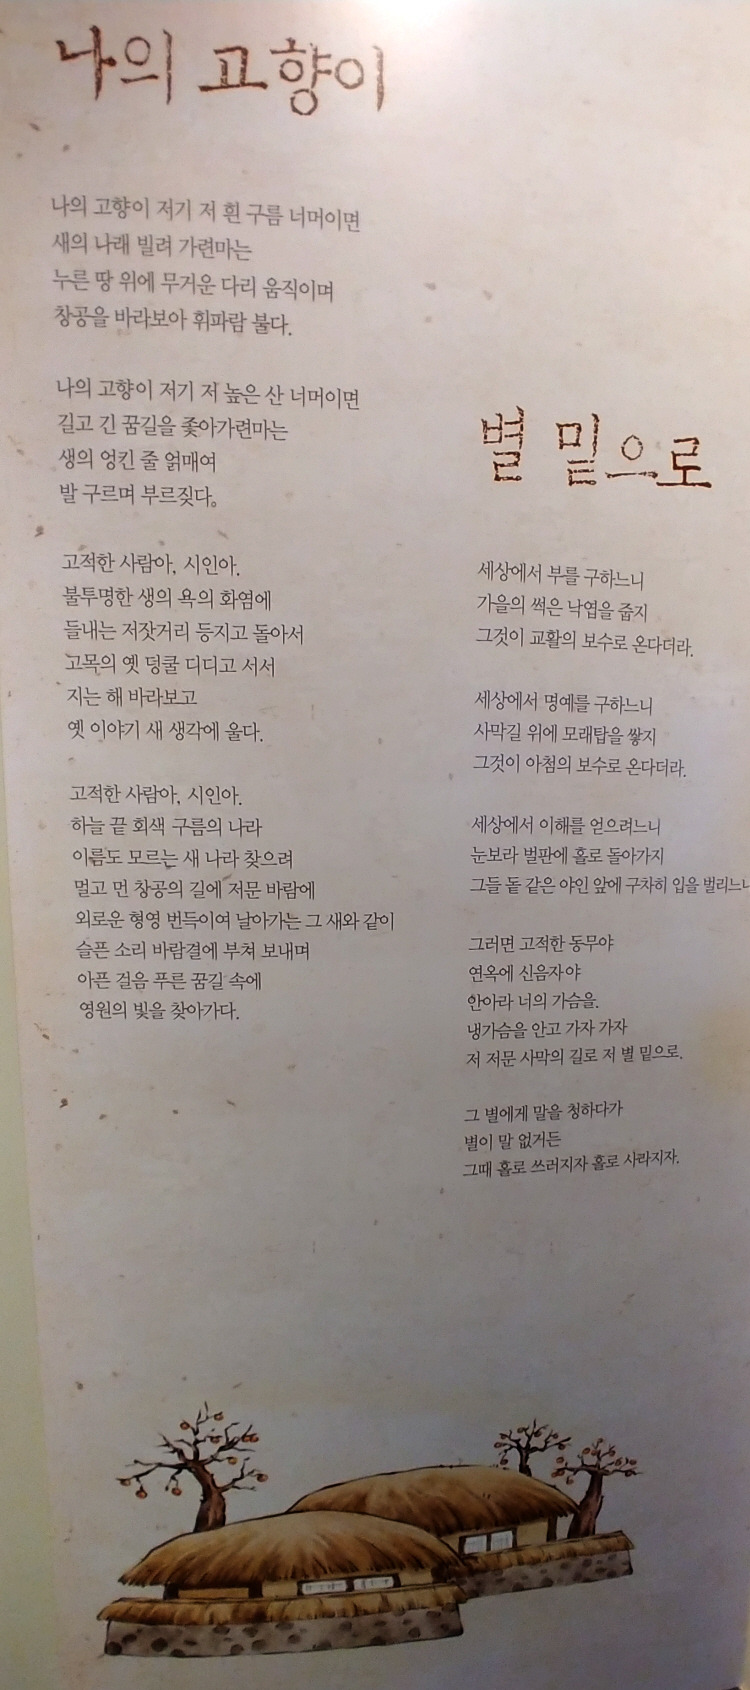 나의 고향이
나의 고향이 저기 저 흰 구름 너머이면
새의 나래 빌려 가련마는
누른 땅 위에 무거운 다리 움직이며
창공을 바라보아 휘파람 불다.
나의 고향이 저기 저 높은 산 너머이면
길고 긴 꿈길을 좇아가련마는
생의 엉킨 줄 얽매여
발 구르며 부르짖다。
고적한 사람아, 시인아.
불투명한 생의 욕의 화염에
들내는 저잣거리 등지고 돌아서
고목의 옛 덩쿨 디디고 서서
지는 해 바라보고
옛 이야기 새 생각에 울다.
고적한 사람아, 시인아.
하늘 끝 회색 구름의 나라
이름도 모르는 새 나라 찾으려
멀고 먼 창공의 길에 저문 바람에
외로운 형영 번득이여 날아가는 그 새와 같이
슬픈 소리 바람결에 부쳐 보내며
아픈 걸음 푸른 꿈길 속에
영원의 빛을 찾아가다.
별 밑으로
세상에서 부를 구하느니
가을의 썩은 낙엽을 줍지
그것이 교활의 보수로 온다더라.
세상에서 명예를 구하느니
사막길 위에 모래탑을 쌓지
그것이 아첨의 보수로 온다더라.
세상에서 이해를 얻으려느니
눈보라 벌판에 홀로 돌아가지
그들 돝 같은 야인 앞에 구차히 입을 벌리느니
그러면 고적한 동무야
연옥에 신음자야
안아라 너의 가슴을.
냉가슴을 안고 가자 가자
저 저문 사막의 길로 저 별 밑으로.
그 별에게 말을 청하다가
별이 말 없거든
그때 홀로 쓰러지자 홀로 사라지자.